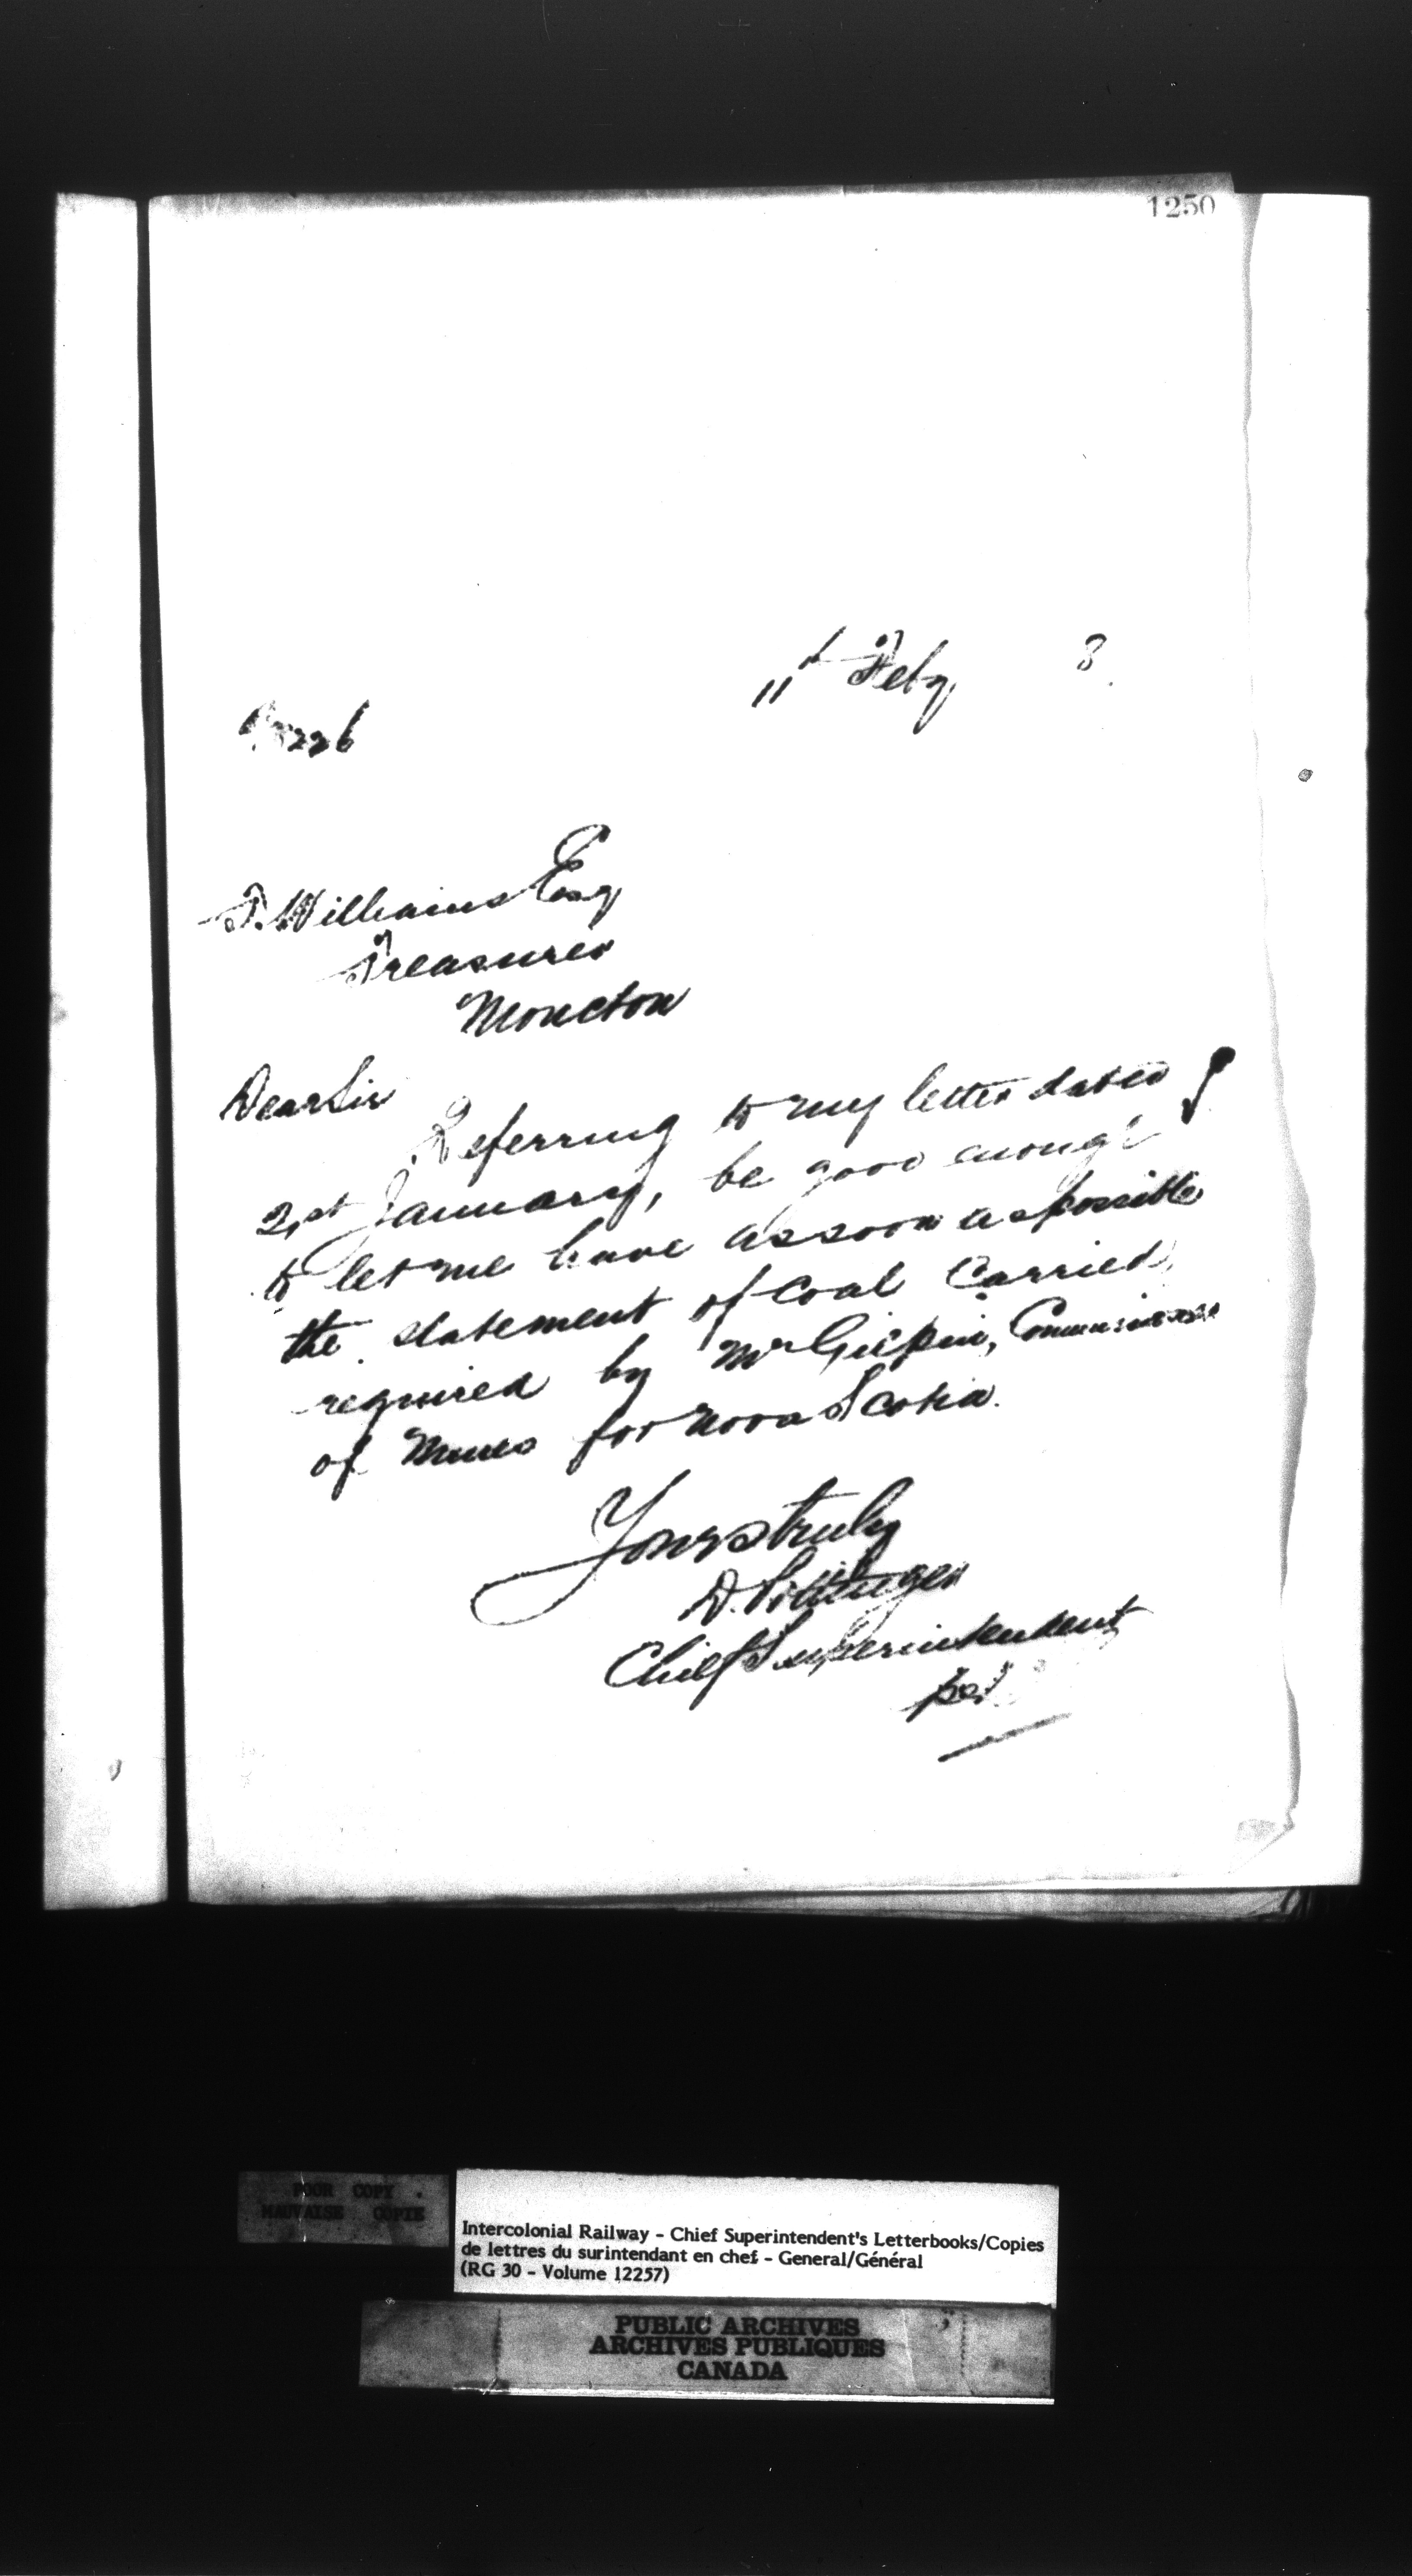 1250
11th Feby 8
T. Williams Esq
Treasurer
Moncton
Dear Sir
Referring to my letter dated
21st January, be good enough
to let me have as soon as possible
the statement of coal carried
required by Mr Gilpin, Commissioner
of Mines for Nova Scotia.
Yours truly
D. Pottinger
Chief Superintendent
per
POOR COPY
MAUVAISE COPIE
Intercolonial Railway - Chief Superintendent's Letterbooks/Copies
de lettres du surintendant en chef - General/Général
(RG 30 - Volume 12257)
PUBLIC ARCHIVES
ARCHIVES PUBLIQUES
CANADA